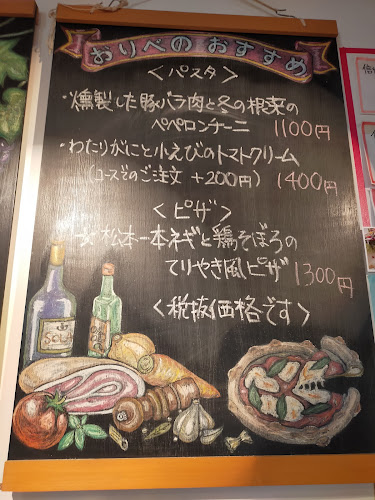 おりべのおすすめ
<パスタ>
・燻製した豚バラ肉と冬の根菜の
ペペロンチーニ 1100円
・わたりがにと小えびのトマトクリーム
(コースでのご注文 +200円) 1400円
<ピザ>
松本一本ネギと鶏そぼろの
てりやき風ピザ 1300円
<税抜価格です>